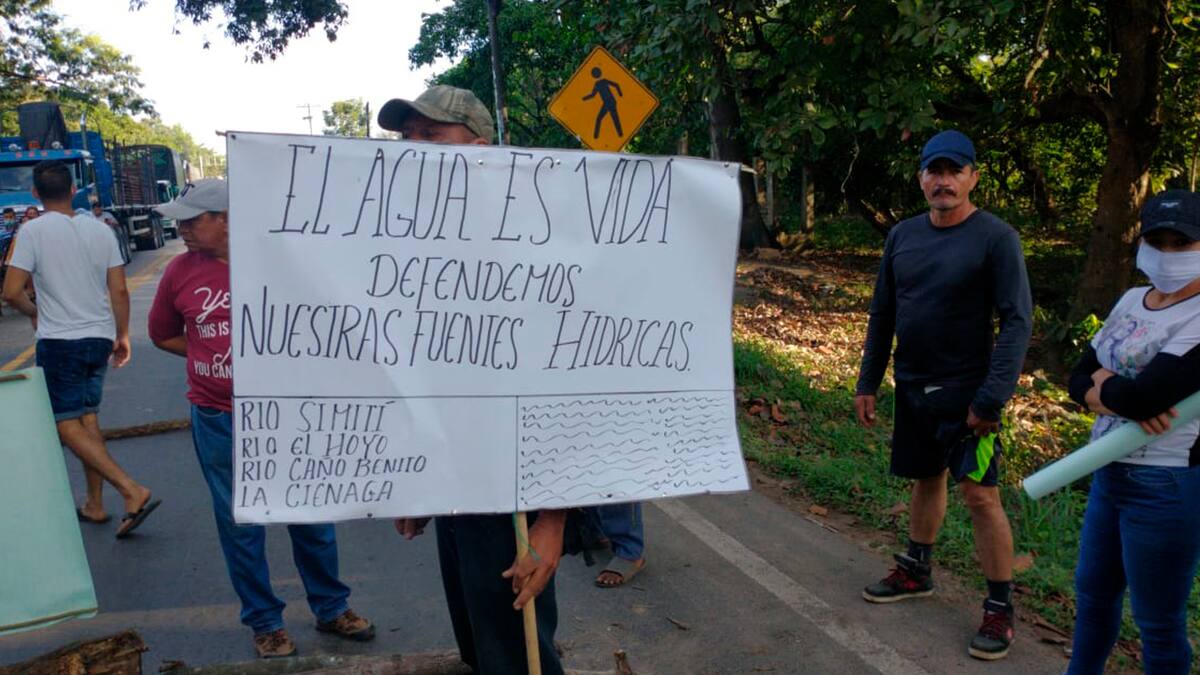 EL AGUA ES VIDA
DEFENDEMOS
NUESTRAS FUENTES HIDRICAS.
RIO SIMITÍ
RIO EL HOYO
RIO CAÑO BENITO
LA CIÉNAGA
THIS IS
YOU CAN